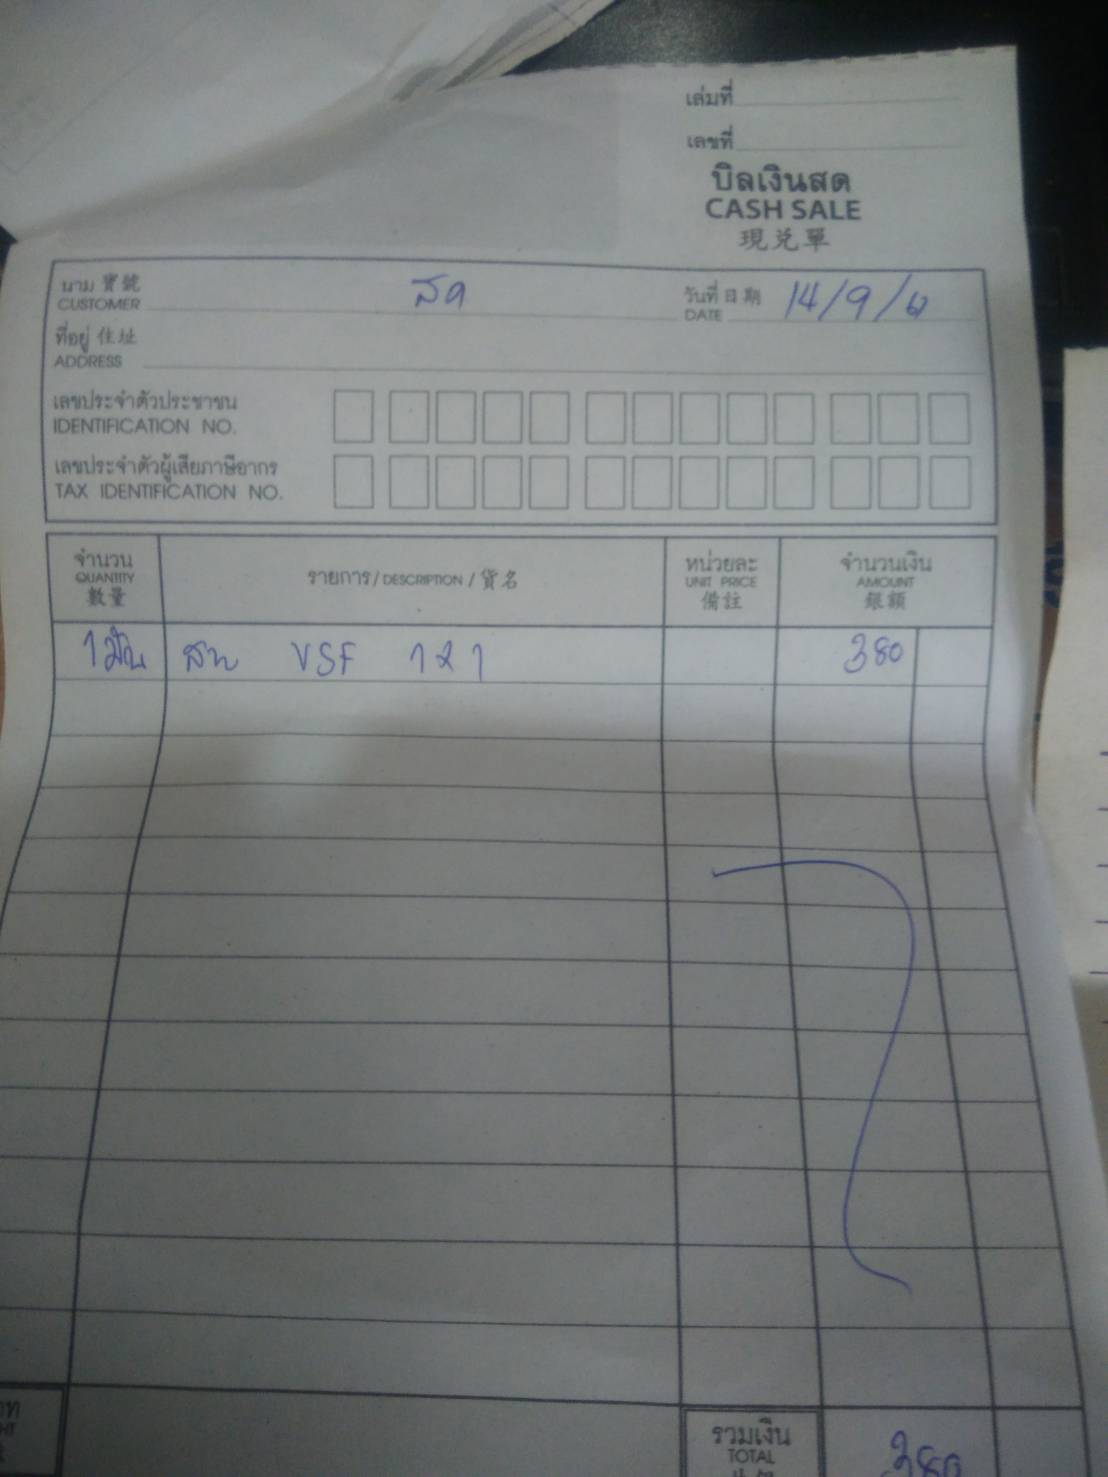 เล่มที่
เลขที่
บิลเงินสด
CASH SALE
現兌單
นาม 寶號
CUSTOMER
สด
วันที่ 日期
DATE
14/9/
ที่อยู่ 住址
ADDRESS
เลขประจำตัวประชาชน
IDENTIFICATION NO.
เลขประจำตัวผู้เสียภาษีอากร
TAX IDENTIFICATION NO.
จำนวน
QUANTITY
數量
รายการ / DESCRIPTION / 貨名
หน่วยละ
UNIT PRICE
備註
จำนวนเงิน
AMOUNT
銀額
1 VSF 121 380
รวมเงิน
TOTAL
380